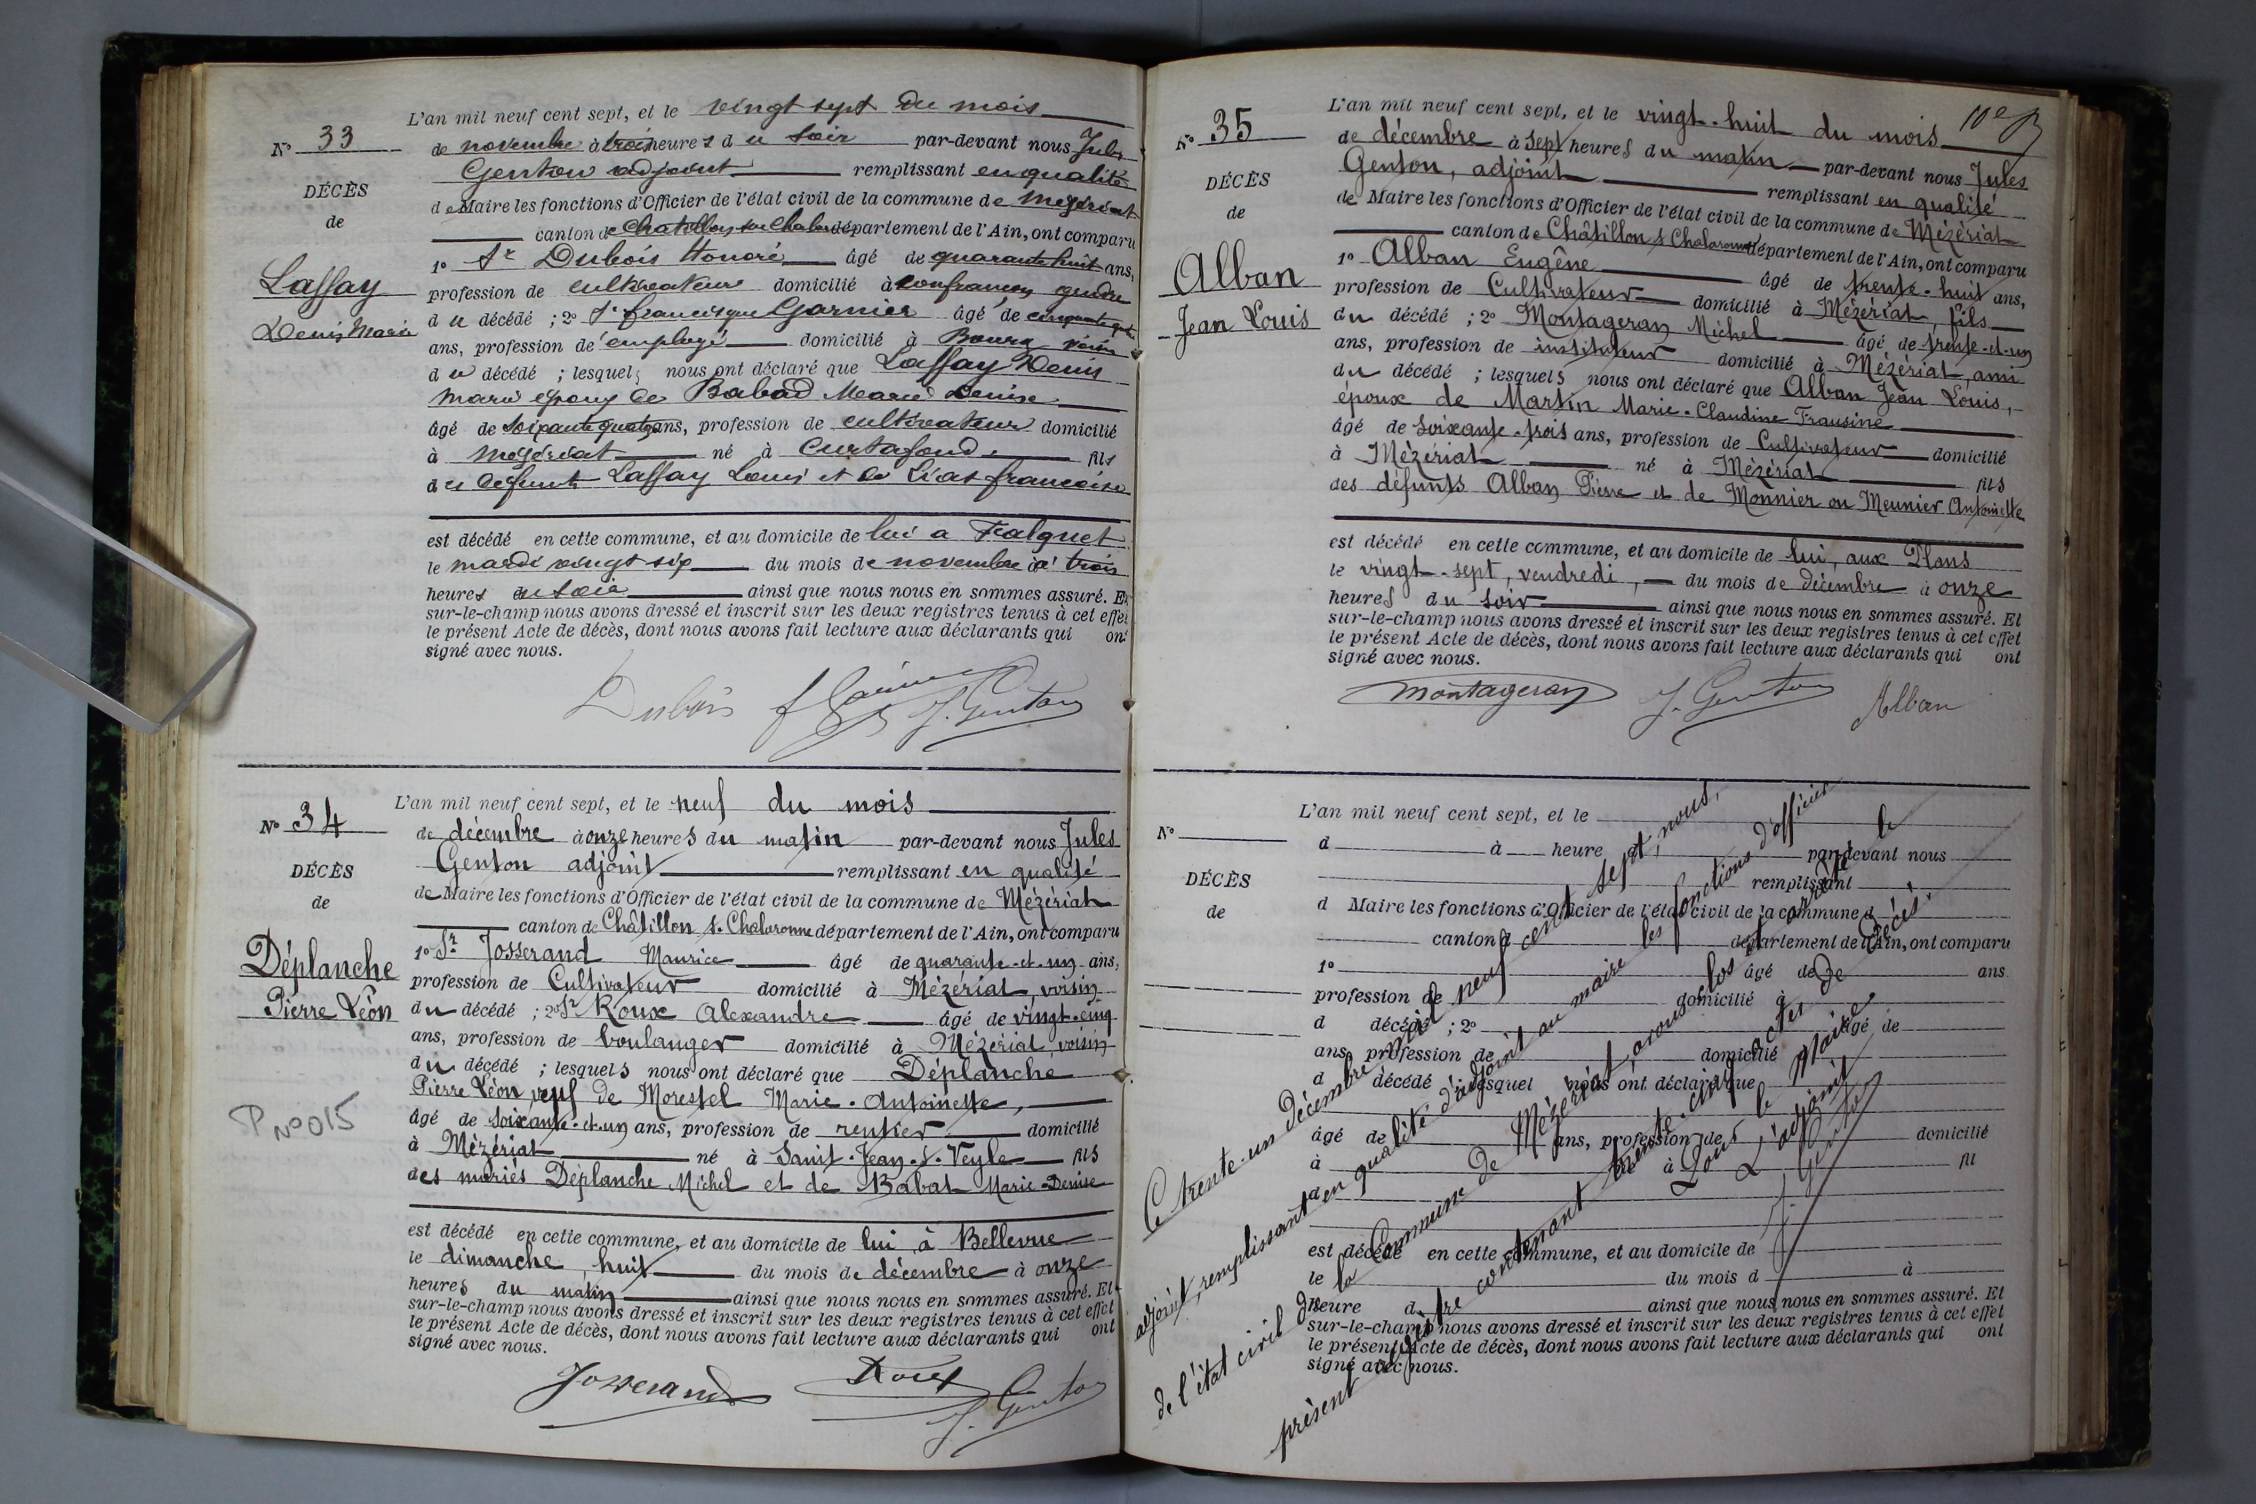 L'an mil neuf cent sept, et le vingt sept du mois
N° 33
de novembre à trois heures du soir par-devant nous Jules
Genton adjoint remplissant en qualité
DÉCÈS
de Maire les fonctions d'Officier de l'état civil de la commune de Mézériat
de
canton de Chatillon sur Chalaronne département de l'Ain, ont comparu
1° Sr Dubois Honoré âgé de quarante huit ans,
Laffay
profession de cultivateur domicilié à Confrançon gendre
Denis Marie
du décédé ; 2° Sr francisque Garnier âgé de
ans, profession de employé domicilié à Bourg voisin
du décédé ; lesquels nous ont déclaré que Laffay Denis
Marie époux de Babad Marie Denise
âgé de Soixante quatorze ans, profession de cultivateur domicilié
à Mézériat né à Curtafond fils
de défunt Laffay Louis et de françoise
est décédé en cette commune, et au domicile de lui a
le mardi vingt six du mois de novembre à trois
heures du soir ainsi que nous nous en sommes assuré. Et
sur-le-champ nous avons dressé et inscrit sur les deux registres tenus à cet effet
le présent Acte de décès, dont nous avons fait lecture aux déclarants qui ont
signé avec nous.
Dubois f Garnier J. Genton
L'an mil neuf cent sept, et le neuf du mois
N° 34
de décembre à onze heures du matin par-devant nous Jules
Genton adjoint remplissant en qualité
DÉCÈS
de Maire les fonctions d'Officier de l'état civil de la commune de Mézériat
de
canton de Châtillon s. Chalaronne département de l'Ain, ont comparu
1° Sr Josserand Maurice âgé de quarante-et-un ans,
Déplanche
profession de Cultivateur domicilié à Mézériat, voisin
Pierre Léon
du décédé ; 2° Sr Roux Alexandre âgé de vingt-cinq
ans, profession de boulanger domicilié à Mézériat, voisin
du décédé ; lesquels nous ont déclaré que Déplanche
Pierre Léon, veuf de Morestel Marie-Antoinette,
P N° 015
âgé de soixante-et-un ans, profession de rentier domicilié
à Mézériat né à Saint-Jean-s-Veyle fils
des mariés Déplanche Michel et de Babat Marie-Denise
est décédé en cette commune, et au domicile de lui, à Bellevue
le dimanche, huit du mois de décembre à onze
heures du matin ainsi que nous nous en sommes assuré. Et
sur-le-champ nous avons dressé et inscrit sur les deux registres tenus à cet effet
le présent Acte de décès, dont nous avons fait lecture aux déclarants qui ont
signé avec nous.
Josserand Roux J. Genton
L'an mil neuf cent sept, et le vingt-huit du mois 11e
N° 35
de décembre à sept heures du matin par-devant nous Jules
Genton, adjoint remplissant en qualité
DÉCÈS
de Maire les fonctions d'Officier de l'état civil de la commune de Mézériat
de
canton de Châtillon s Chalaronne département de l'Ain, ont comparu
1° Alban Eugène âgé de trente-huit ans,
Alban
profession de Cultivateur domicilié à Mézériat, fils
Jean Louis
du décédé ; 2° Montageran Michel âgé de trente-et-un
ans, profession de instituteur domicilié à Mézériat, ami
du décédé ; lesquels nous ont déclaré que Alban Jean Louis,
époux de Martin Marie-Claudine Frausine
âgé de soixante-trois ans, profession de Cultivateur domicilié
à Mézériat né à Mézériat fils
des défunts Alban Pierre et de Monnier ou Meunier Antoinette
est décédé en cette commune, et au domicile de lui, aux Plans
le vingt-sept, vendredi, du mois de décembre à onze
heures du soir ainsi que nous nous en sommes assuré. Et
sur-le-champ nous avons dressé et inscrit sur les deux registres tenus à cet effet
le présent Acte de décès, dont nous avons fait lecture aux déclarants qui ont
signé avec nous.
Montageran J. Genton Alban
L'an mil neuf cent sept, et le
N°
d à heure d par-devant nous
remplissant
DÉCÈS
d Maire les fonctions d'Officier de l'état civil de la commune d
de
canton d département de l'Ain, ont comparu
1° âgé de ans
profession de domicilié à
d décédé ; 2° âgé de
ans, profession de domicilié
d décédé ; lesquel nous ont déclaré que
âgé de ans, profession de domicilié
à né à fil
d
est décédé en cette commune, et au domicile de
le du mois d à
heure d ainsi que nous nous en sommes assuré. Et
sur-le-champ nous avons dressé et inscrit sur les deux registres tenus à cet effet
le présent Acte de décès, dont nous avons fait lecture aux déclarants qui ont
signé avec nous.
Ce trente-un décembre mil neuf cent sept, nous,
adjoint, remplissant en qualité d'adjoint au maire les fonctions d'officier
de l'état civil de la Commune de Mézériat avons clos et arrêté le
présent registre contenant trente-cinq actes de décès.
Pour le Maire
L'adjoint
J. Genton